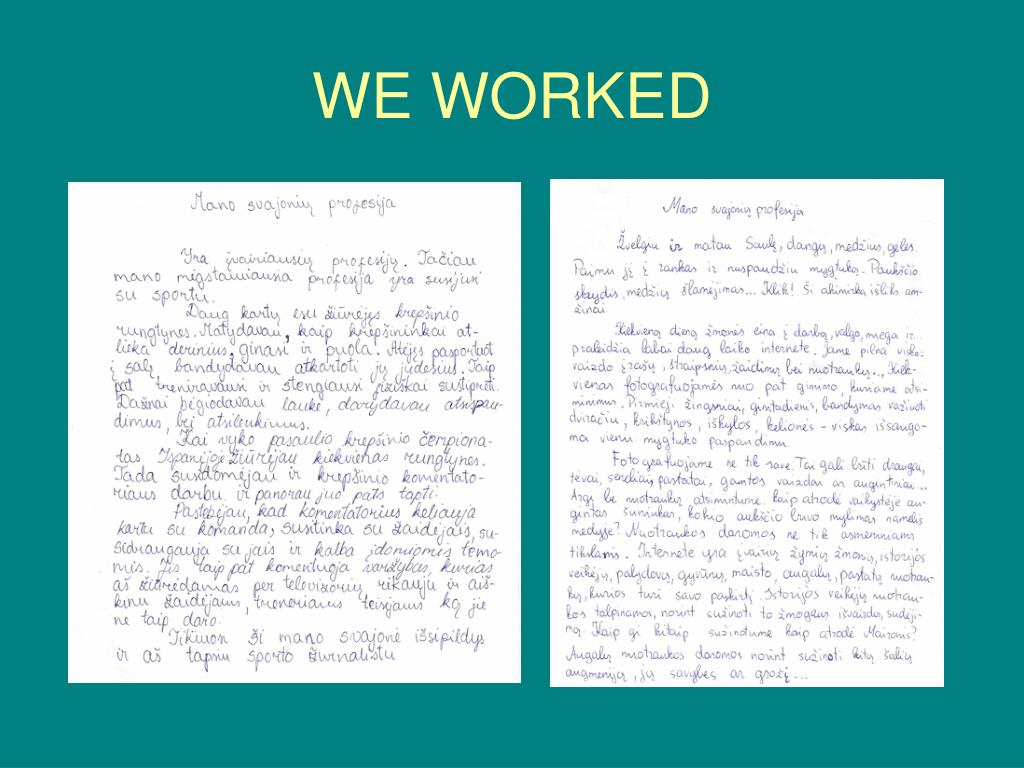 WE WORKED
Mano svajonių profesija
Yra įvairiausių profesijų. Tačiau
mano mėgstamiausia profesija yra susijusi
su sportu.
Daug kartų esu žiūrėjęs krepšinio
rungtynes. Matydavau, kaip krepšininkai at-
lieka derinius, ginasi ir puola. Atėjęs pasportuot
į salę bandydavau atkartoti jų judesius. Taip
pat treniravausi ir stengiausi fiziškai sustiprėti.
Dažnai bėgiodavau lauke, darydavau atsispau-
dimus, bei atsilenkimus.
Kai vyko pasaulio krepšinio čempiona-
tas Ispanijoje žiūrėjau kiekvienas rungtynes.
Tada susidomėjau ir krepšinio komentato-
riaus darbu ir panorau juo pats tapti.
Pastebėjau, kad komentatorius keliauja
kartu su komanda, susitinka su žaidėjais, su-
sidraugauja su jais ir kalba įdomiomis temo-
mis. Jis taip pat komentuoja varžybas, kurias
aš žiūrėdamas per televizorių rėkauju ir aiš-
kinu žaidėjams, treneriams teisėjams ką jie
ne taip daro.
Tikiuosi ši mano svajonė išsipildys
ir aš tapsiu sporto žurnalistu
Mano svajonių profesija
Žvelgiu ir matau Saulę, dangų, medžius, gėles.
Paimu jį į rankas ir nuspaudžiu mygtuką. Paukščio
skrydis, medžių šlamėjimas... Klik! Ši akimirka išliks am-
žinai.
Kiekvieną dieną žmonės eina į darbą, valgo, miega ir...
praleidžia labai daug laiko internete. Jame pilna visko:
vaizdo įrašų, straipsnių, žaidimų bei nuotraukų... Kiek-
vienas fotografuojamės nuo pat gimimo, kuriame atsi-
minimus. Pirmieji žingsniai, gimtadieniai, bandymas važiuoti
dviračiu, krikštynos, iškylos, kelionės - viskas išsaugo-
ma vienu mygtuko paspaudimu.
Fotografuojame ne tik save. Tai gali būti draugai,
tėvai, seneliai, pastatai, gamtos vaizdai ar augintiniai...
Argi be nuotraukų atsimintume, kaip atrodė vaikystėje au-
gintas šuniukas, kokio aukščio buvo mylimas namelis
medyje? Nuotraukos daromos ne tik asmeniniams
tikslams. Internete yra įvairių žymių žmonių, istorijos
veikėjų, palydovų, gyvūnų, maisto, augalų, pastatų nuotrau-
kų, kurios turi savo paskirtį. Istorijos veikėjų nuotrau-
kos talpinamos, norint sužinoti to žmogaus išvaizdą, sudėji-
mą. Kaip gi kitaip sužinotume kaip atrodė Maironis?
Augalų nuotraukos daromos norint sužinoti kitų šalių
augmeniją, jų savybes ar grožį...